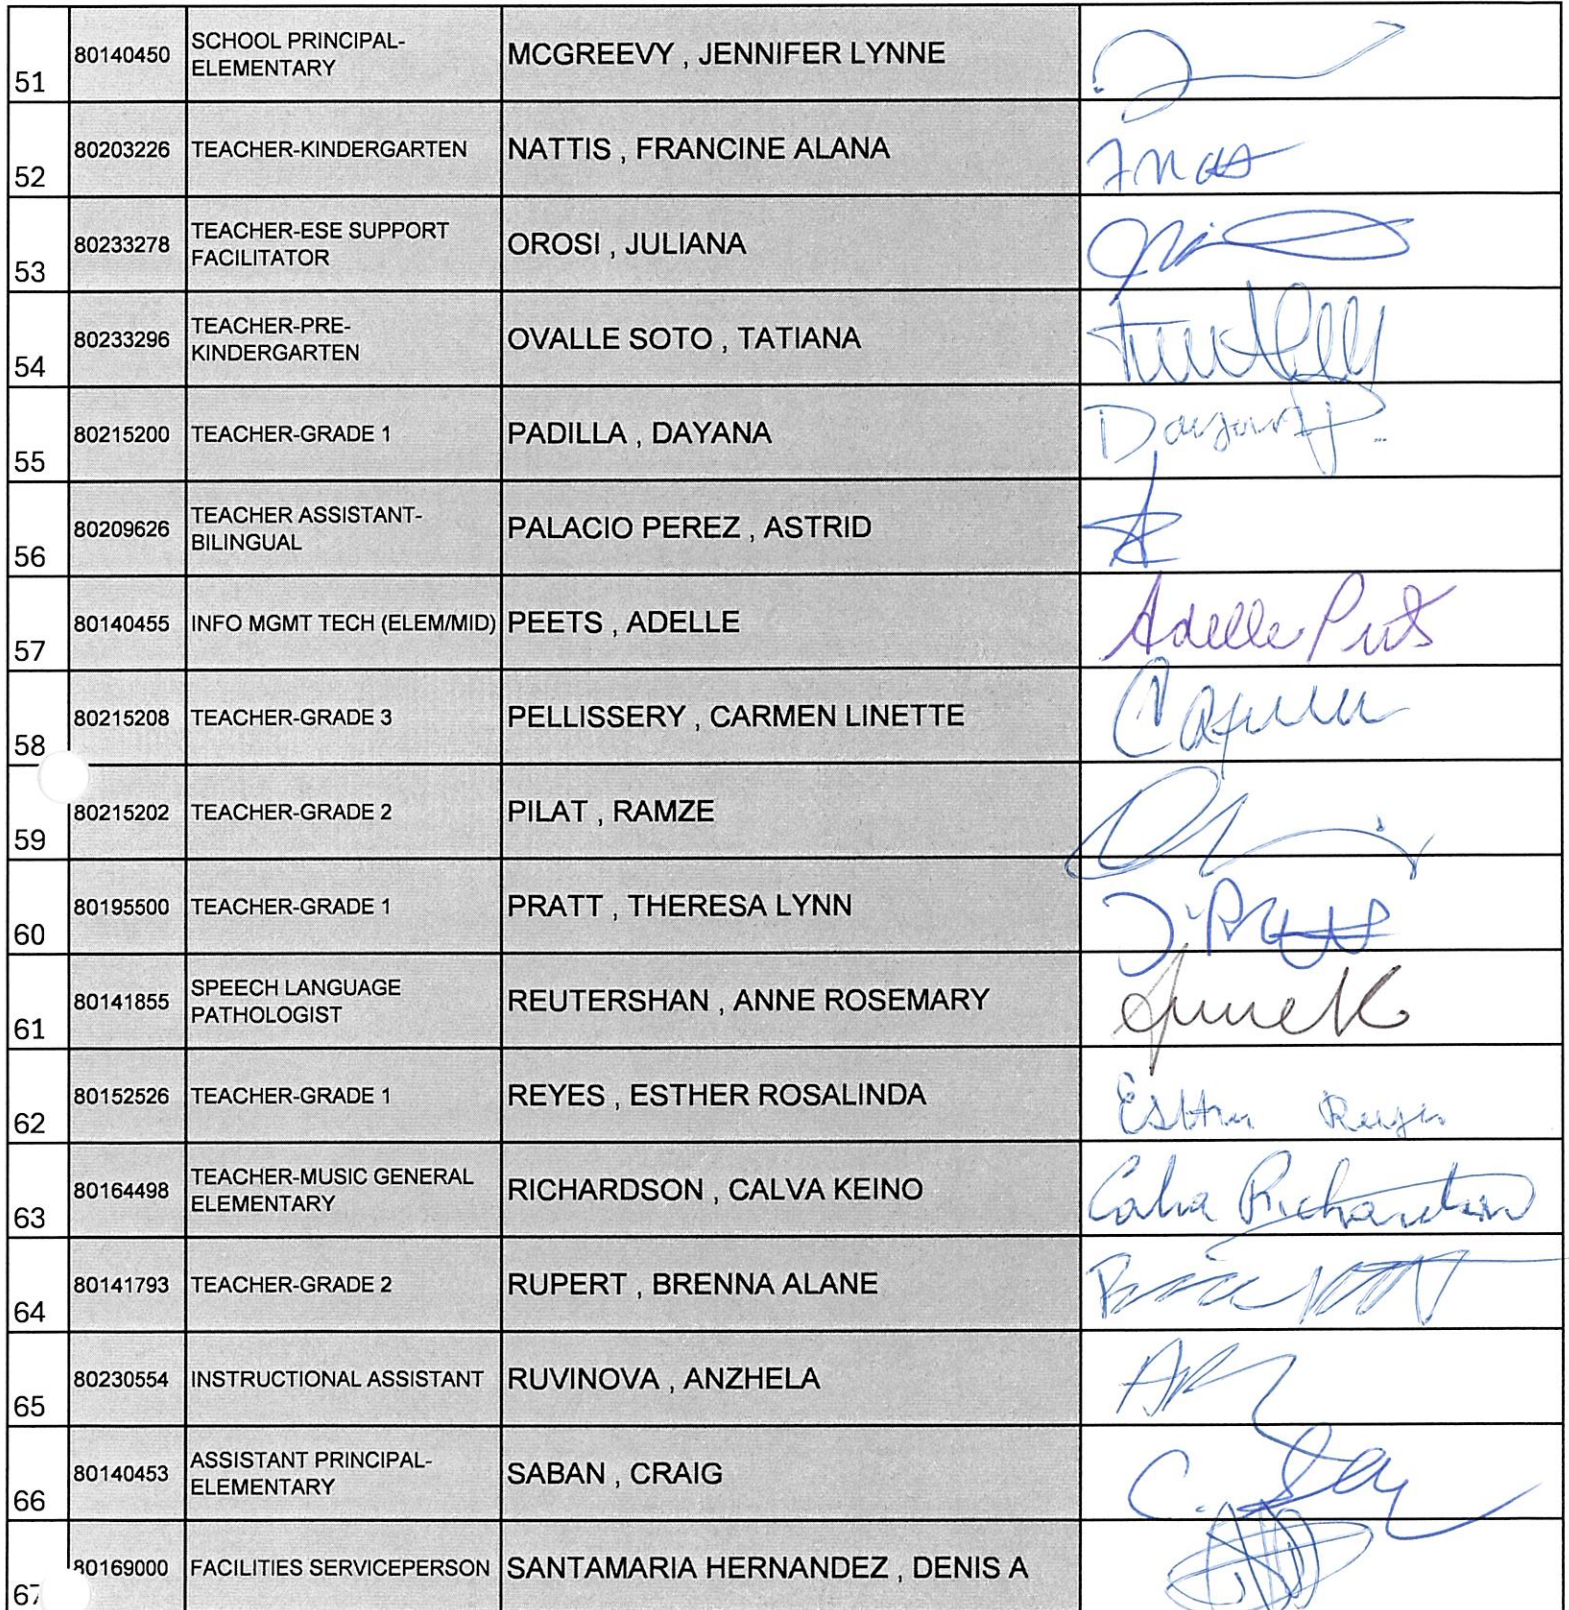 51 80140450 SCHOOL PRINCIPAL-ELEMENTARY MCGREEVY , JENNIFER LYNNE
52 80203226 TEACHER-KINDERGARTEN NATTIS , FRANCINE ALANA
53 80233278 TEACHER-ESE SUPPORT FACILITATOR OROSI , JULIANA
54 80233296 TEACHER-PRE-KINDERGARTEN OVALLE SOTO , TATIANA
55 80215200 TEACHER-GRADE 1 PADILLA , DAYANA
56 80209626 TEACHER ASSISTANT-BILINGUAL PALACIO PEREZ , ASTRID
57 80140455 INFO MGMT TECH (ELEM/MID) PEETS , ADELLE Adelle Peets
58 80215208 TEACHER-GRADE 3 PELLISSERY , CARMEN LINETTE
59 80215202 TEACHER-GRADE 2 PILAT , RAMZE
60 80195500 TEACHER-GRADE 1 PRATT , THERESA LYNN
61 80141855 SPEECH LANGUAGE PATHOLOGIST REUTERSHAN , ANNE ROSEMARY
62 80152526 TEACHER-GRADE 1 REYES , ESTHER ROSALINDA Esther Reyes
63 80164498 TEACHER-MUSIC GENERAL ELEMENTARY RICHARDSON , CALVA KEINO Calva Richardson
64 80141793 TEACHER-GRADE 2 RUPERT , BRENNA ALANE
65 80230554 INSTRUCTIONAL ASSISTANT RUVINOVA , ANZHELA
66 80140453 ASSISTANT PRINCIPAL-ELEMENTARY SABAN , CRAIG
67 80169000 FACILITIES SERVICEPERSON SANTAMARIA HERNANDEZ , DENIS A